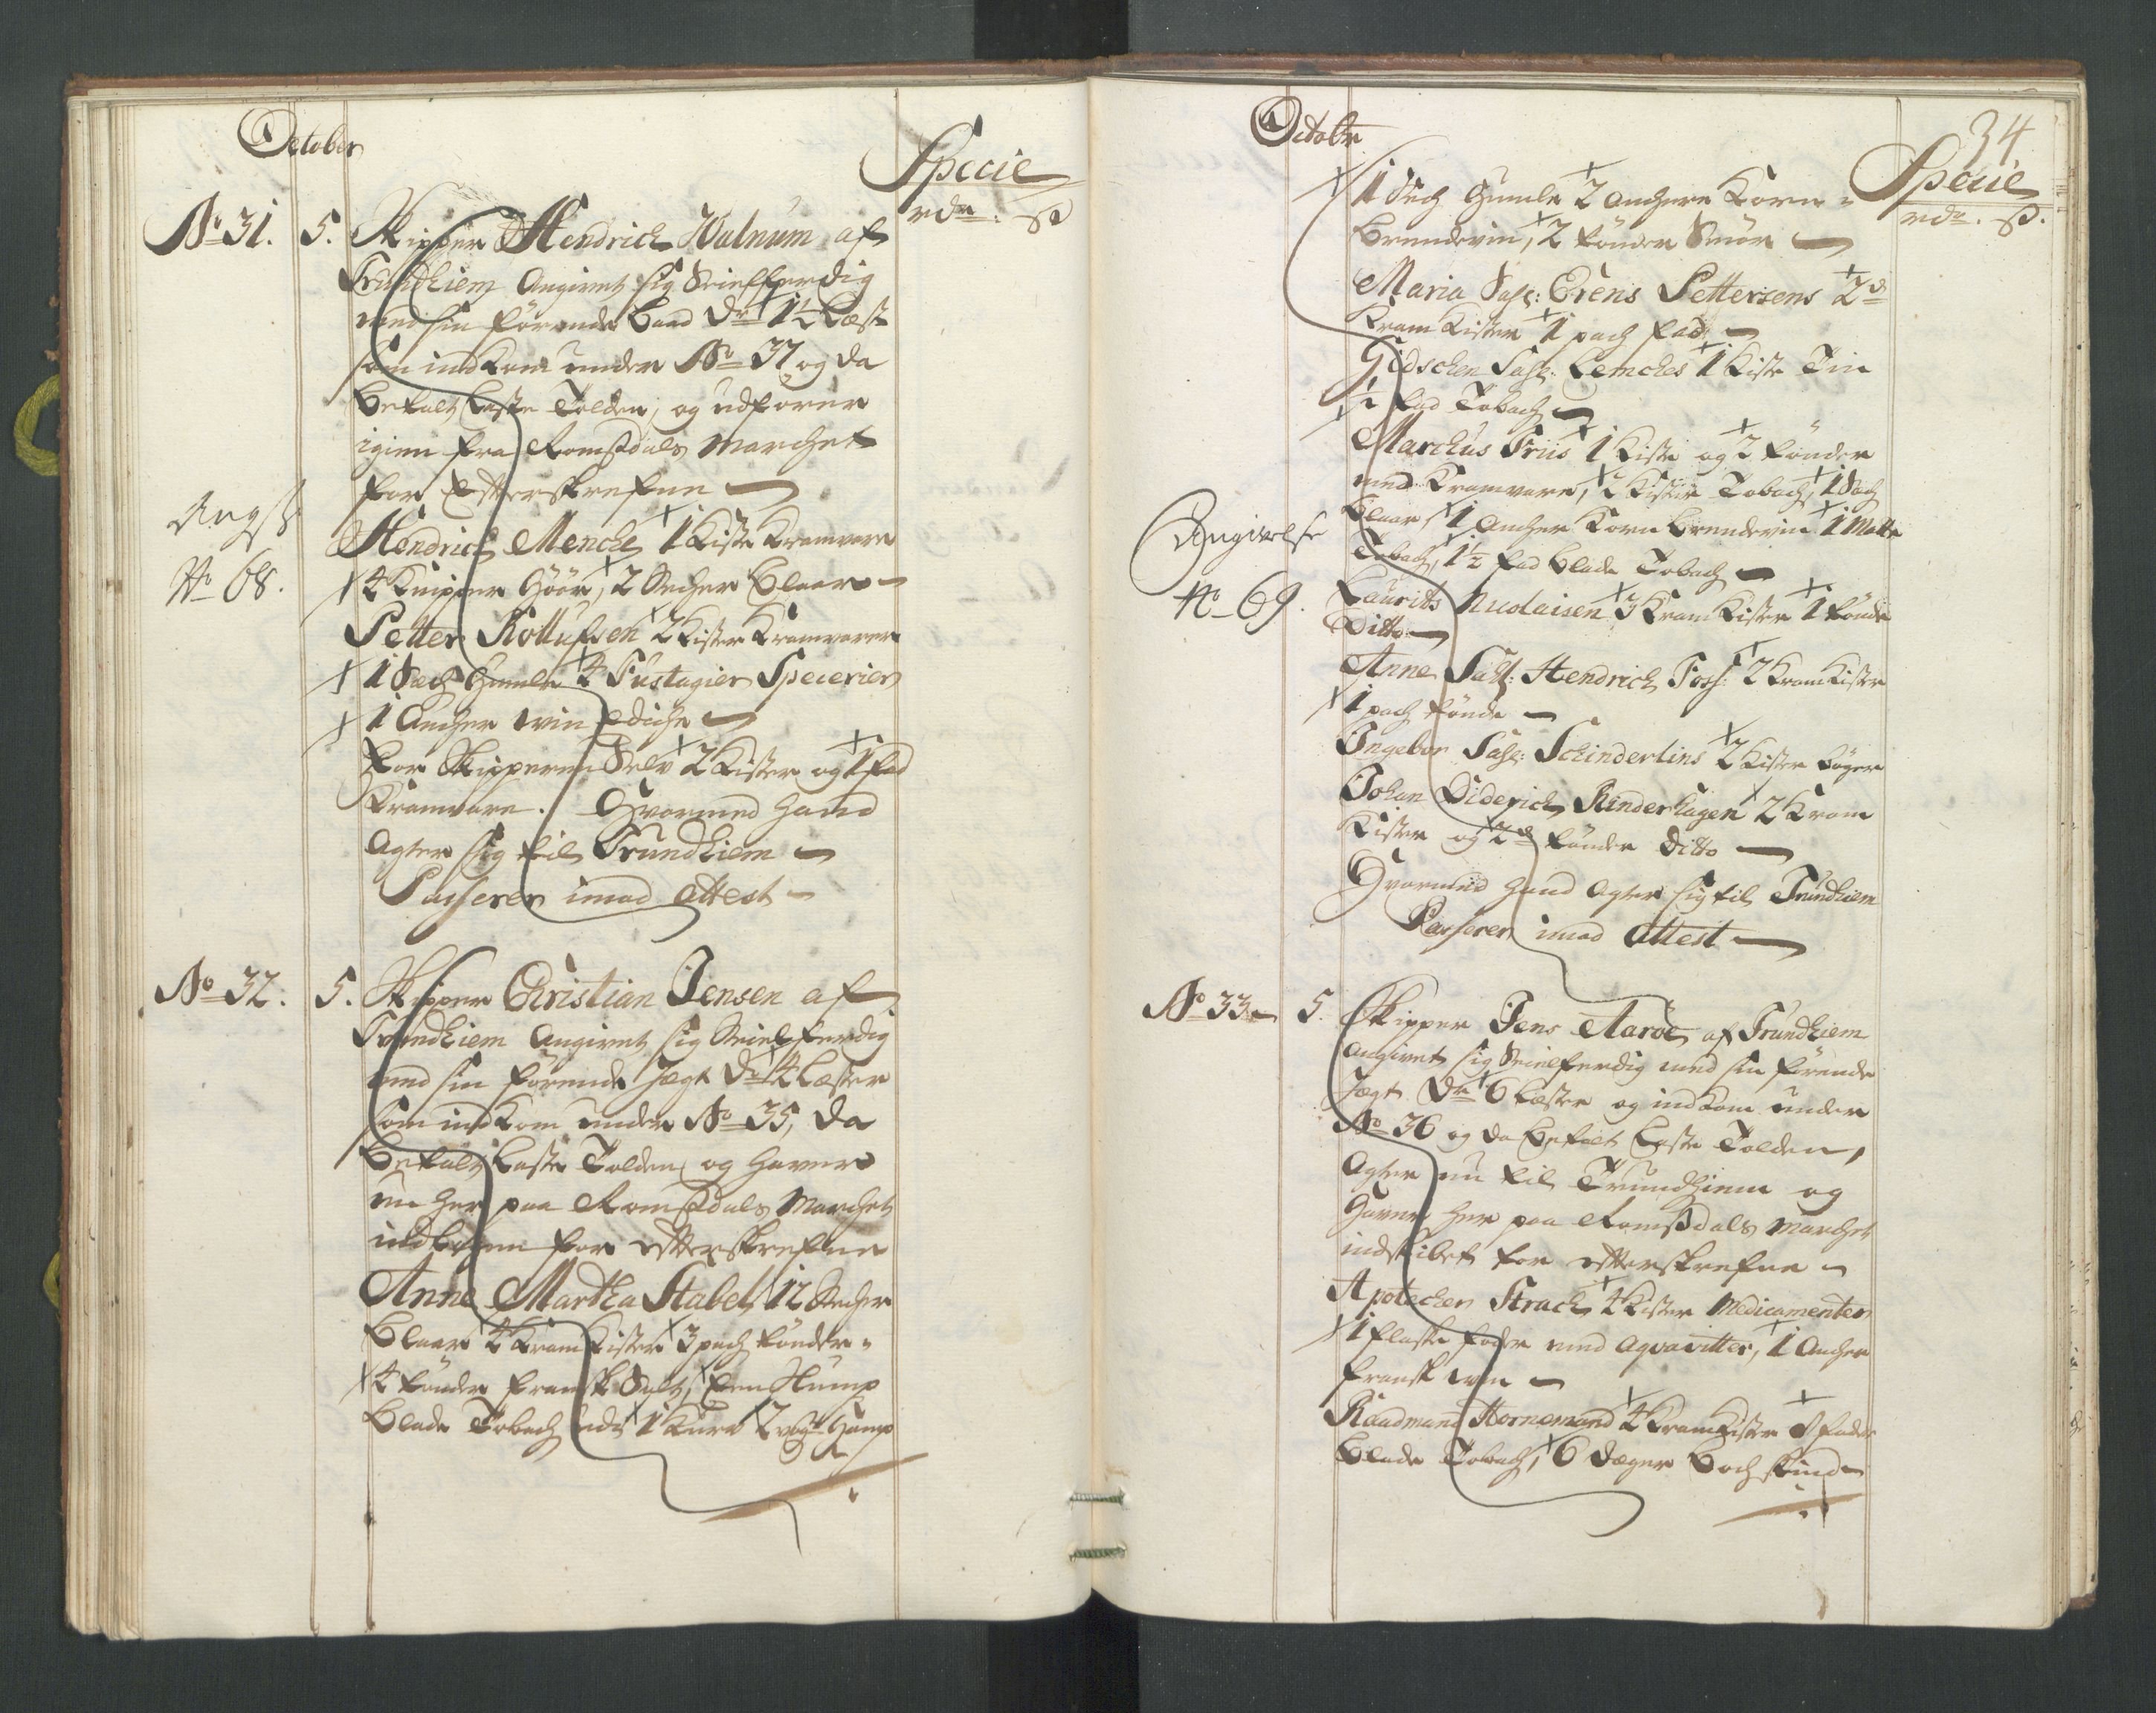 October
Specie
rdr. ß
No 31. 5. Skipper Hendrich Walnum af
Trundhiem Angivet sig Seielferdig
med sin förende Baad Dr 1½ Læst
som indkom under No 37 og da
Betalt Læste Tolden, og udförer
igien fra Romsdals Marchet
for Efterskrefne
Angß
No 68.
Hendrich Menche 1 Kiste Kramvare
4 Knipper Höör, 2 Secher Blaar
Petter Rollufsen 2 Kister Kramvarer
1 Sech Humle 4 Fustagier Specerier
1 Ancher Win Ediche
For Skipperen Selv 2 Kister og 1 Fad
Kramvare. Hvormed Hand
Agter sig til Trundhiem
Passerer imod Attest
No 32. 5. Skipper Christian Jensen af
Trundhiem Angivet sig Seielferdig
med sin förende Jægt Dr 4 Læster
som indkom under No 35, da
Betalt Læste Tolden og Haver
nu her paa Romsdals Marchet
for efterskrefne
Anne Martha Stabel 12 Secher
Blaar 4 Kram Kister 3 pach tönder
4 tönder Fransk Salt, Een Stump
Blade Tobach 1 Kurv 2 Hamp
October
34
Specie
rdr. ß.
1 Sech Humle 2 Anchere Korn
Brendevin, 2 tönder Smör
Maria Sahl: Erens Pettersens 2de
Kram Kister 1 pach fad
Gidschen Sahl: Lemches 1 Kiste Tin
1 fad Tobach
Marchus Friis 1 Kiste og 2 tönder
med Kramvare, 2 Kister Tobach, 1 Sech
Blaar, 1 Ancher Korn Brendevin 1 Matte
Tobach, 1½ fad blade Tobach
Angivelse
No 69.
Laurits Nicolaisen 3 Kram Kister 1 tönde
Ditto
Anne Sahl: Hendrich Foss: 2 Kram Kister
1 pach tönde
Ingebor Sahl: Schinderlins 2 Kister Böger
Johan Diderich Rinderhagen 2 Kram
Kister og 2de tönder Ditto
Hvormed Hand Agter sig til Trundhiem
Passerer imod Attest
No 33. 5. Skipper Jens Aaröe af Trundhiem
Angivet sig Seielferdig med sin förende
Jægt Dr 6 Læster og indkom under
No 36 og da Betalt Læste Tolden,
Agter nu til Trundhiem og
Haver her paa Romsdals Marchet
indskibet for efterskrefne
Apotecher Strach 4 Kister Medicamenter
1 flaske foder med Aqvavitter, 1 Ancher
Fransk win
Raadmand Hornemand 4 Kram Kister 8 fade
Blade Tobach, 6 Deger Boch skind